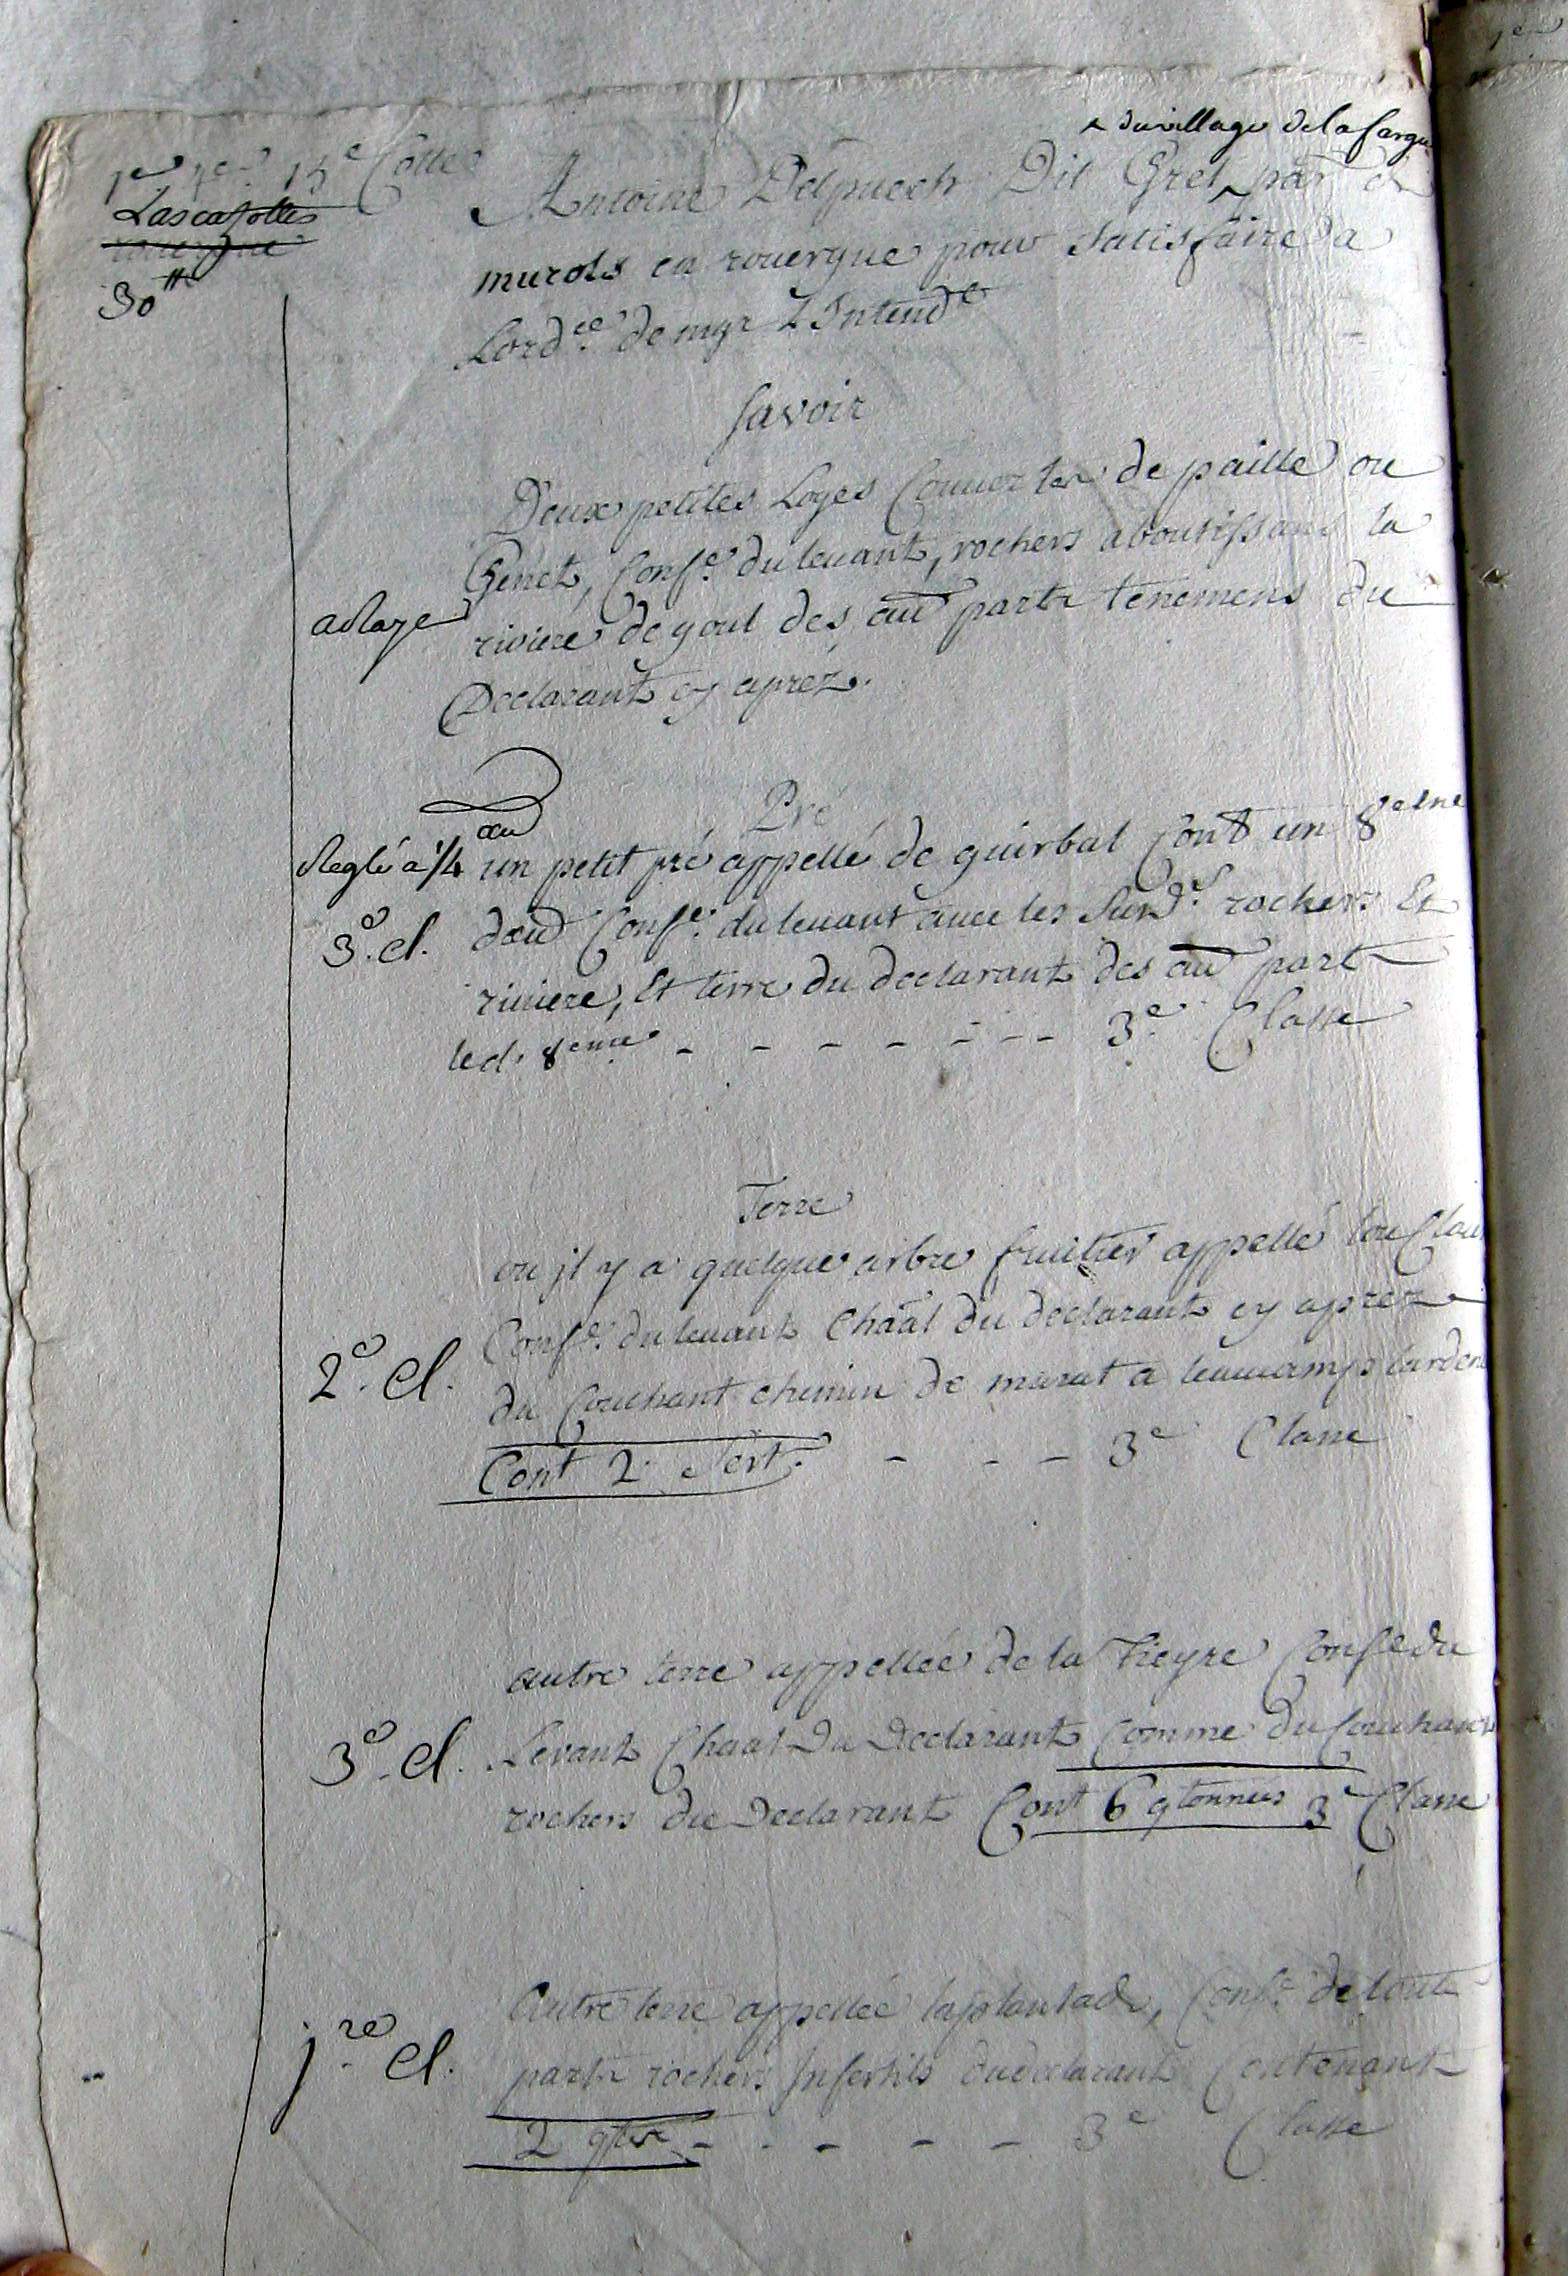 ^ du village de lafargue
15e Cotte
Lascasottes
30tt
Antoine Delpuech Dit Gret, par de
murols en rouergue pour Satisfaire a
Lordce de mgr L'Intendt
Savoir
Deux petites Loges Couvertes de paille ou
Genet, Confe. du levant, rochers aboutissans la
aolage
riviere de goul des au partz tenemens du
Declarant cy aprez.
Pré
Reglé a 1/4
un petit pré appellé de guirbal Cont un 8eme
3e. cl.
dœu Confe. du levant avec les Surd. rochers Et
riviere, Et terre du declarant des au part
led. 8eme - - - - - - - 3e. Classe
Terre
ou jl y a quelque arbre fruitier appellé lou Claux
Confe. du levant Chaāl du declarant cy aprez
2e. cl.
du Couchant chemin de murat a
Cont 2. Sert. - - - 3e Classe
autre terre appellée de la Fieyre Confe du
3e. cl.
Levant Chaāl Du Declarant Comme du Couchant
rochers du Declarant Cont 6 qtonnées 3e Classe
Autre terre appellée laplantade, Confe. de toute
jre. cl.
partz rochers Infertils dudeclarant Contenant
2 qtes - - - - - 3e Classe